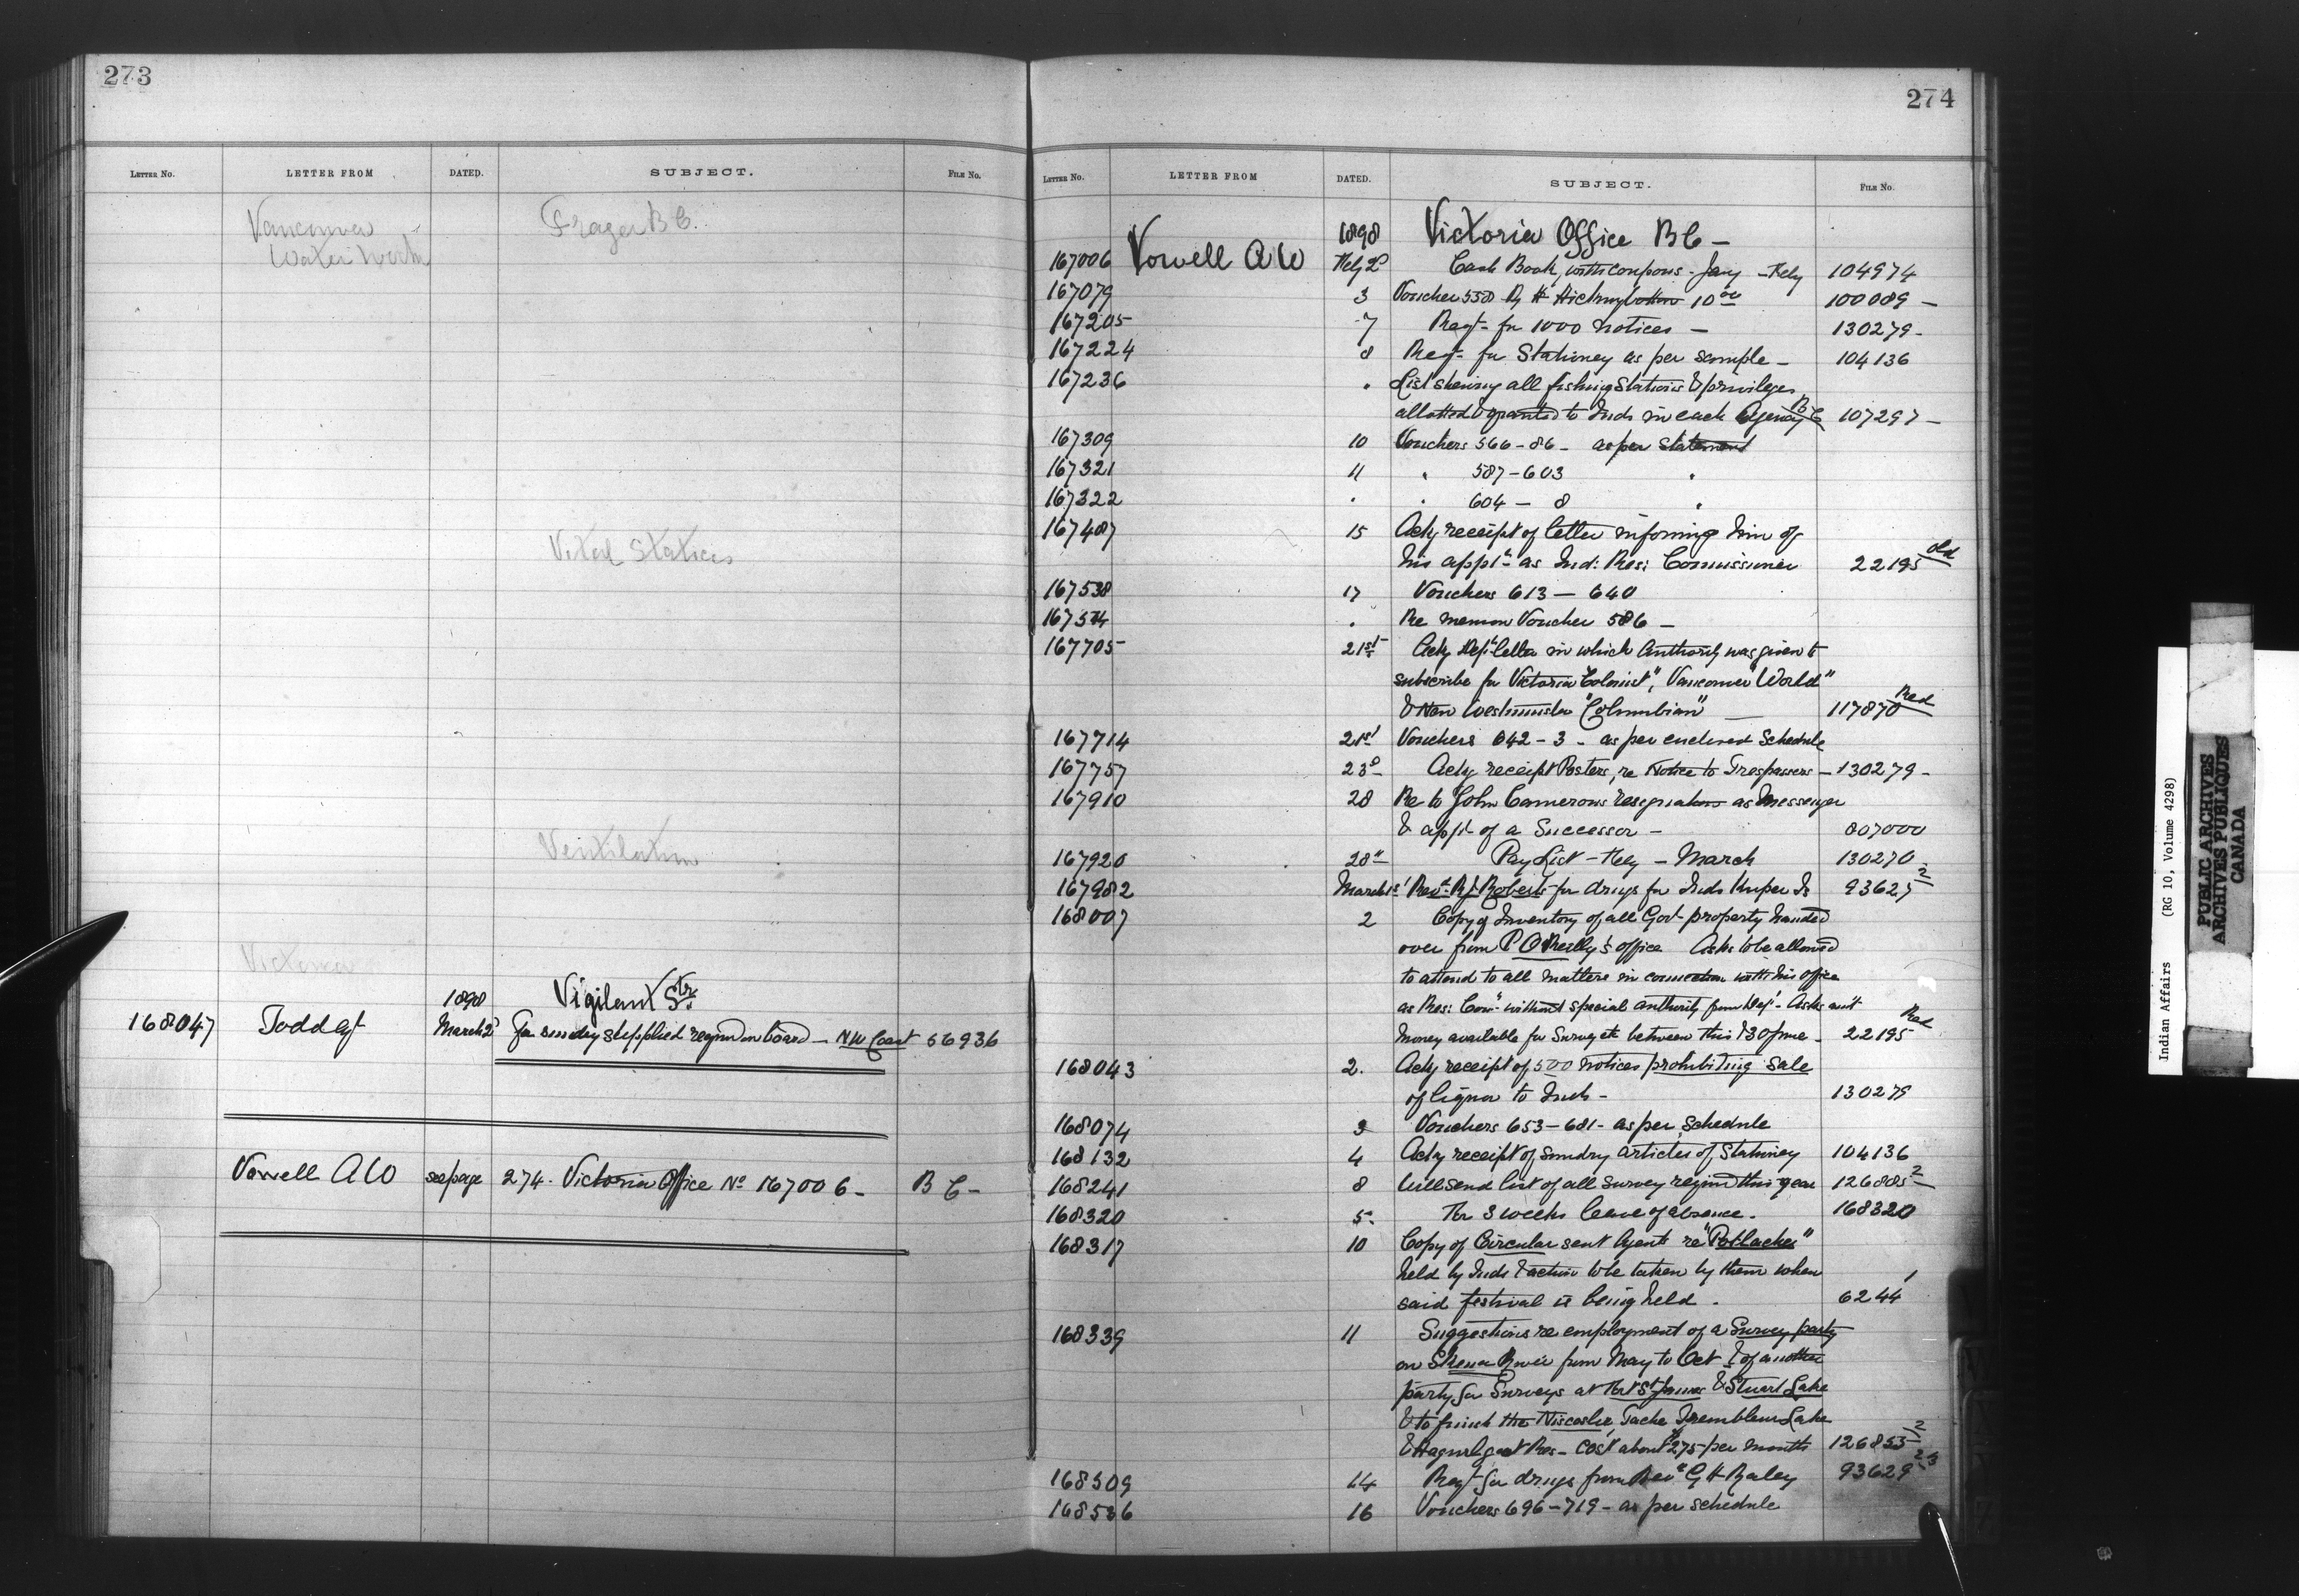 273
LETTER No. LETTER FROM DATED. SUBJECT. FILE No.
Vancouver Fraser B C.
Water Works
Vital Statics
Ventilation
Victoria
1898 Vigilant Str.
168047 Todd Agt March 2d for sundry supplied reqrd on board – N W Coast 56936
Vowell A W see page 274. Victoria Office No 167006 – B C –
274
LETTER No. LETTER FROM DATED. SUBJECT. FILE No.
1898 Victoria Office B C –
167006 Vowell A W Feby 2d Cash Book, with coupons – Jany – Feby 104974
167079 3 Voucher 558 10 00 100089 –
167205 7 Reqt for 1000 notices – 130279 –
167224 8 Reqt for Stationey as per sample – 104136
167236 " List shewing all fishing Stations & privileges
allotted & granted to Inds in each Agency B C 107297 –
167309 10 Vouchers 566 – 86 – as per Statement
167321 11 " 587 – 603 "
167322 " " 604 – 8 "
167487 15 Ackg receipt of letter informing him of
his appt as Ind: Res: Commissioner 22195 old
167538 17 Vouchers 613 – 640
167574 " Re memon Voucher 586 –
167705 21st Ackg Dept letter in which Authority was given to
subscribe for Victoria "Colonist", Vancouver "World"
& New Westminster "Columbian" – 117870 Red
167714 21st Vouchers 642 – 3 – as per enclosed Schedule
167757 23d Ackg receipt Posters, re Notice to Trespassers – 130279 –
167910 28 Re to John Camerons resignation as Messenger
& appt of a Successor – 807000
167920 28" Pay List – Feby – March 130270 –
167982 March 1st Revd R J Roberts for drugs for Inds Kuper Is 93625 2
168007 2 Copy of Inventory of all Govt property handed
over from P O'Reilly's office Asks to be allowed
to attend to all matters in connection with his office
as Res: Comr without special authority from Dept – Asks amt
money available for Survey etc between this & 30 June – 22195 Red
168043 2. Ackg receipt of 500 notices prohibiting sale
of liquor to Inds – 130279
168074 3 Vouchers 653 – 681 – as per schedule
168132 4 Ackg receipt of sundry articles of Stationey 104136
168241 8 Will send list of all survey reqired this year 126885 2
168320 5. For 3 weeks leave of absence. 168320
168317 10 Copy of Circular sent Agents re "Potlaches"
held by Inds & action to be taken by them when
said festival is being held. 6244 1
168339 11 Suggestions re employment of a Survey party
on Skeena River from May to Oct & of another
party for Surveys at Fort St James & Stuart Lake
& to finish the Tache Trembleur Lake
Res – Cost about $275 per month 126853 2
168509 14 Reqt for drugs from Revd G H Raley 93629 2-3
168536 16 Vouchers 696 – 719 – as per schedule
Indian Affairs (RG 10, Volume 4298)
PUBLIC ARCHIVES
ARCHIVES PUBLIQUES
CANADA